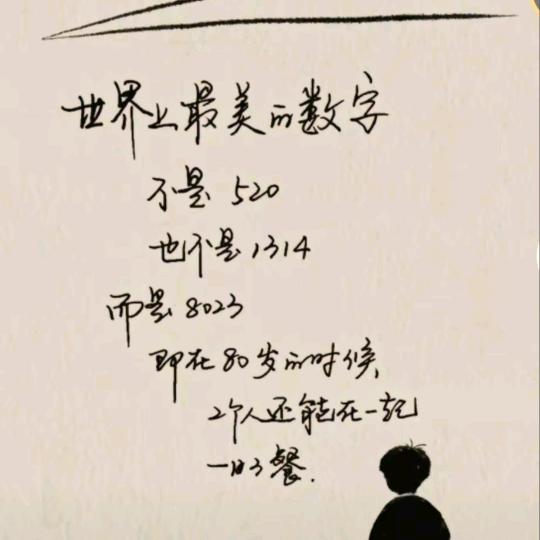 世界上最美的数字
不是 520
也不是 1314
而是 8023
即在 80 岁的时候,
2个人还能在一起
一日3餐.